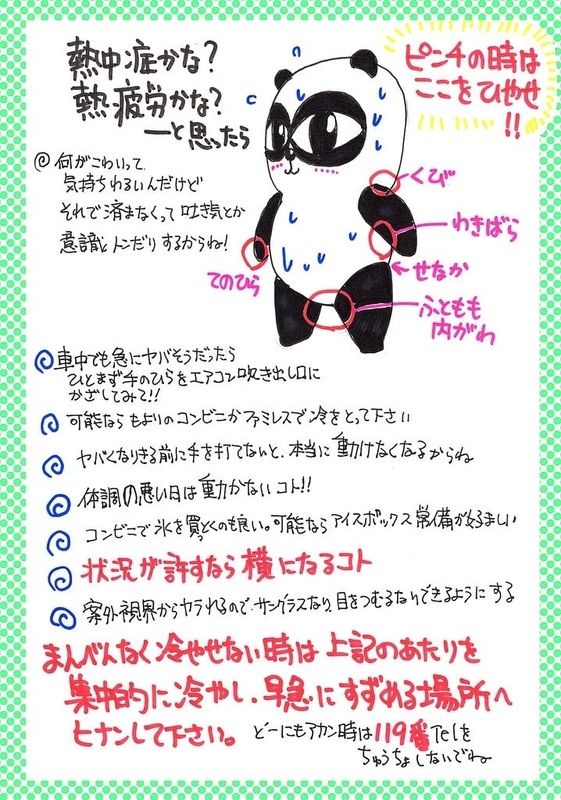 熱中症かな?
熱疲労かな?
ーと思ったら
ピンチの時は
ここをひやせ
!!
何がこわいって、
気持ちわるいんだけど
それで済まなくって吐き気とか
意識トンだりするからね!
くび
わきばら
せなか
てのひら
ふともも
内がわ
車中でも急にヤバそうだったら
ひとまず手のひらをエアコン吹き出し口に
かざしてみて!!
可能ならもよりのコンビニかファミレスで冷をとって下さい
ヤバくなりきる前に手を打てないと、本当に動けなくなるからね
体調の悪い日は動かないコト!!
コンビニで氷を買っとくのも良い。可能ならアイスボックス常備が好ましい
状況が許すなら横になるコト
案外視界からヤラれるので、サングラスなり、目をつむるなりできるようにする
まんべんなく冷やせない時は上記のあたりを
集中的に冷やし、早急にすずめる場所へ
ヒナンして下さい。
どーにもアカン時は119番Telを
ちゅうちょしないでね。